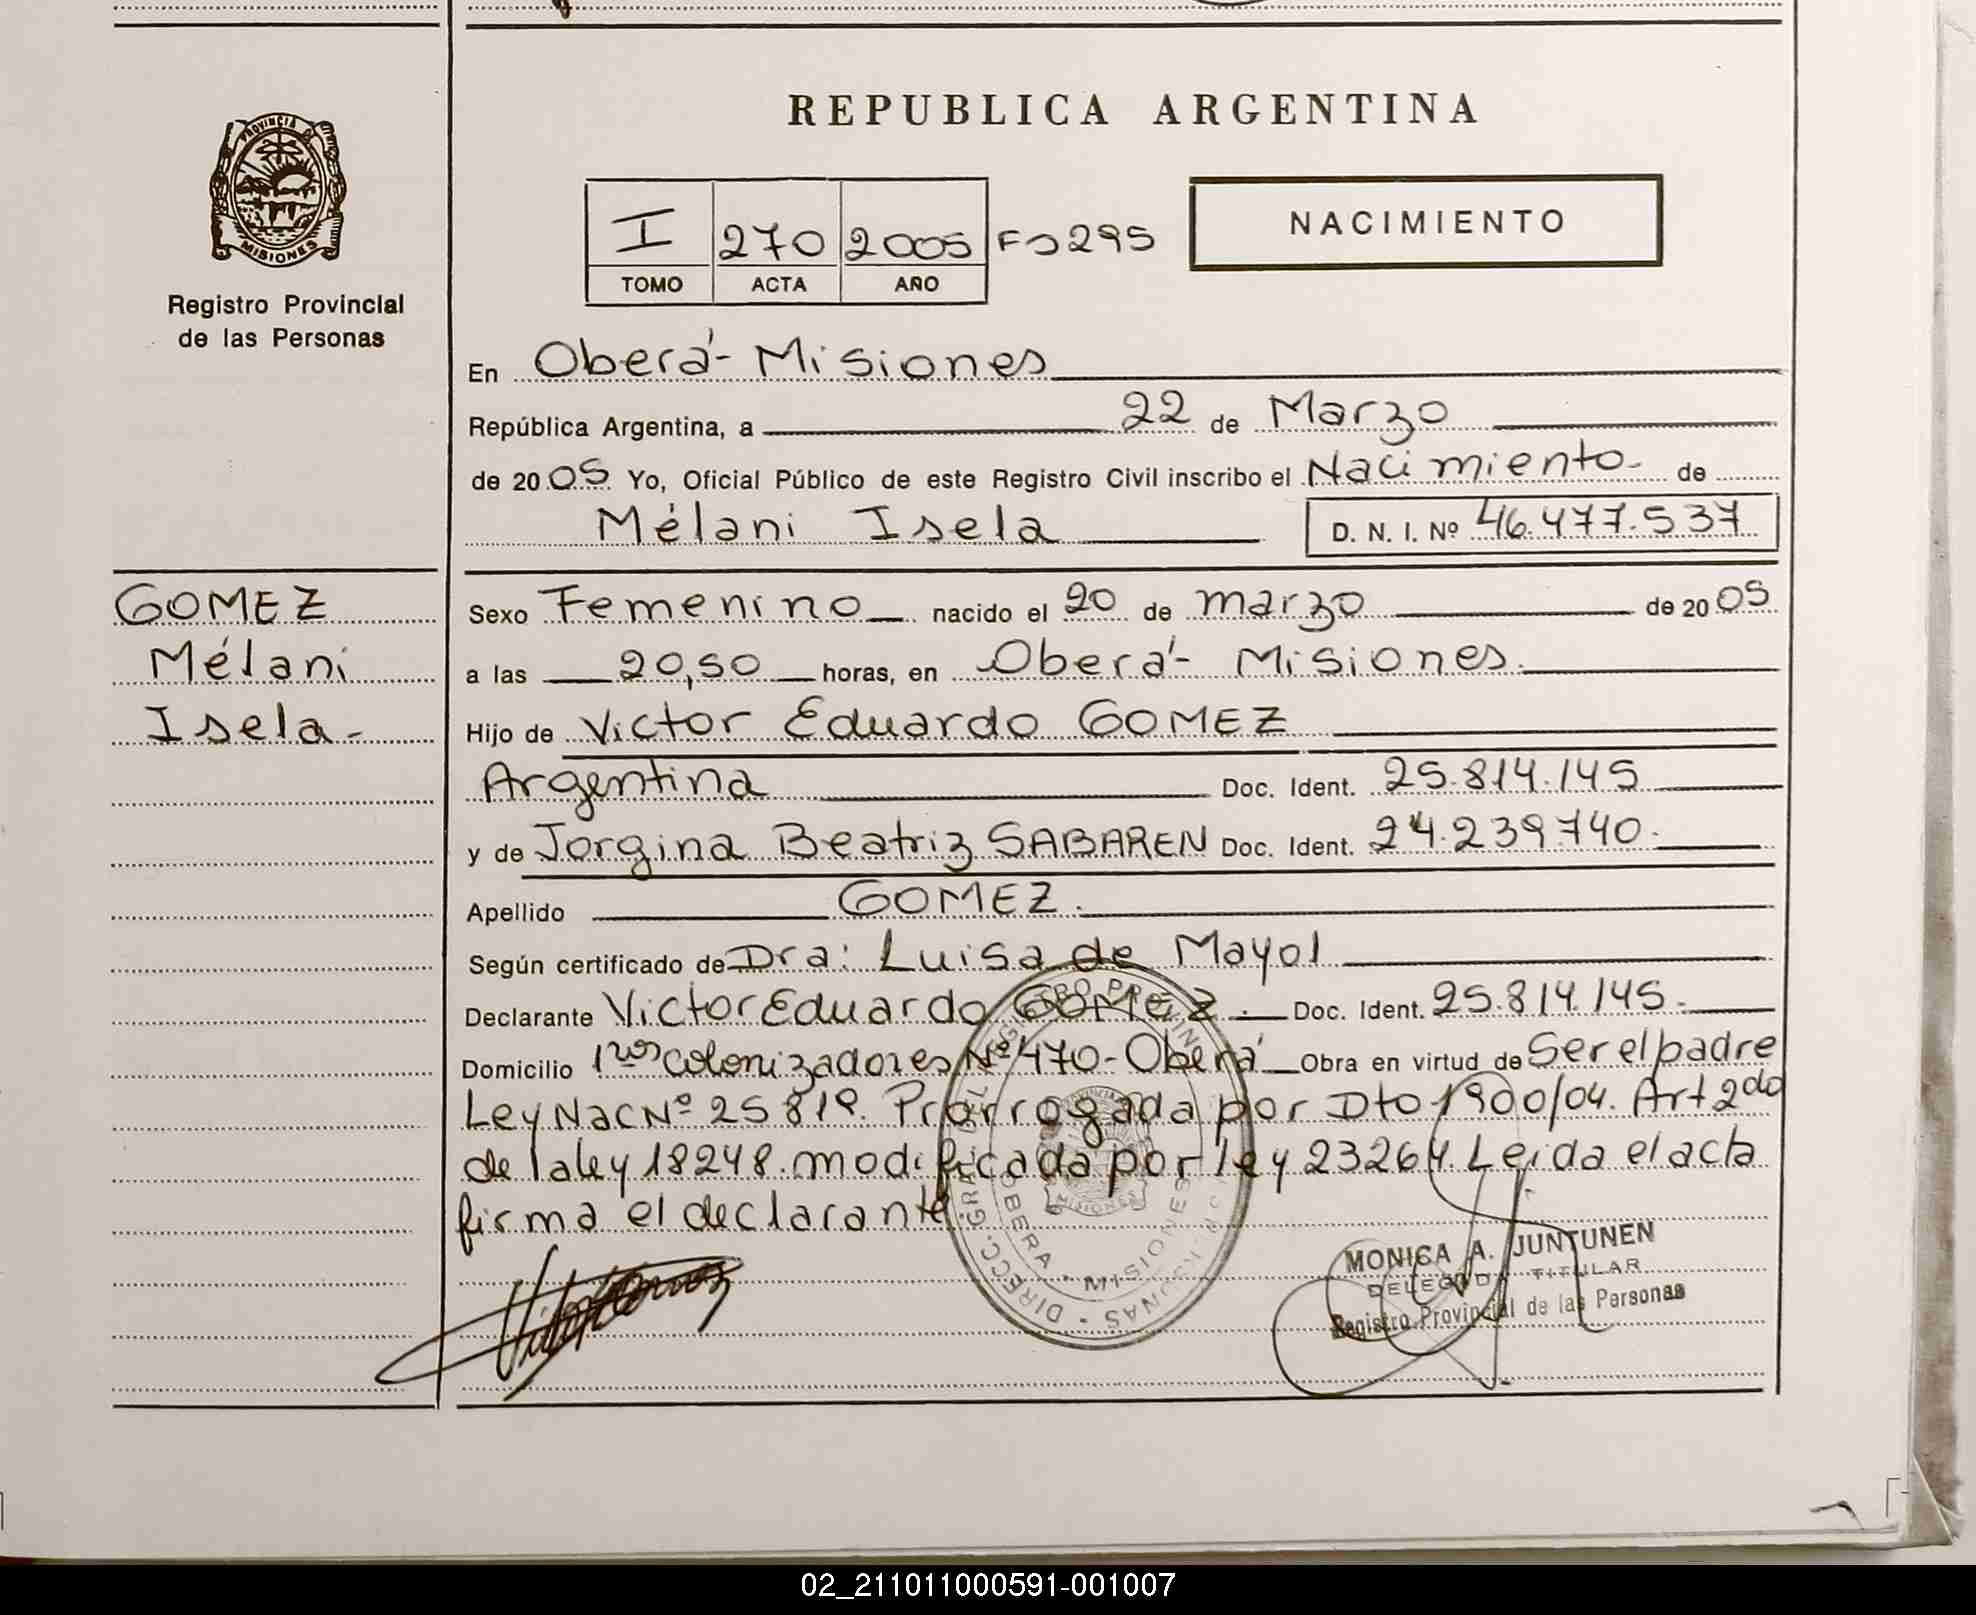 REPUBLICA ARGENTINA
PROVINCIA DE
MISIONES
Registro Provincial
de las Personas
I 270 2005 Fº 295
TOMO ACTA AÑO
NACIMIENTO
En Oberá - Misiones
República Argentina, a 22 de Marzo
de 2005 Yo, Oficial Público de este Registro Civil inscribo el Nacimiento de
Mélani Isela D. N. I. Nº 46.477.537
GOMEZ
Mélani
Isela-
Sexo Femenino nacido el 20 de marzo de 2005
a las 20,50 horas, en Oberá - Misiones.
Hijo de Victor Eduardo GOMEZ
Argentina Doc. Ident. 25.814.145
y de Jorgina Beatriz SABAREN Doc. Ident. 24.239.740.
Apellido GOMEZ.
Según certificado de Dra: Luisa de Mayol
Declarante Victor Eduardo GOMEZ. Doc. Ident. 25.814.145.
Domicilio 1ros colonizadores Nº 470 - Oberá Obra en virtud de Ser el padre
Ley Nac Nº 25819. Prorrogada por Dto 1900/04. Art 2do
de la ley 18248. modificada por ley 23264. Leida el acta
firma el declarante
OBERA - MISIONES
MONICA A. JUNTUNEN
DELEGADA TITULAR
Registro Provincial de las Personas
02_211011000591-001007